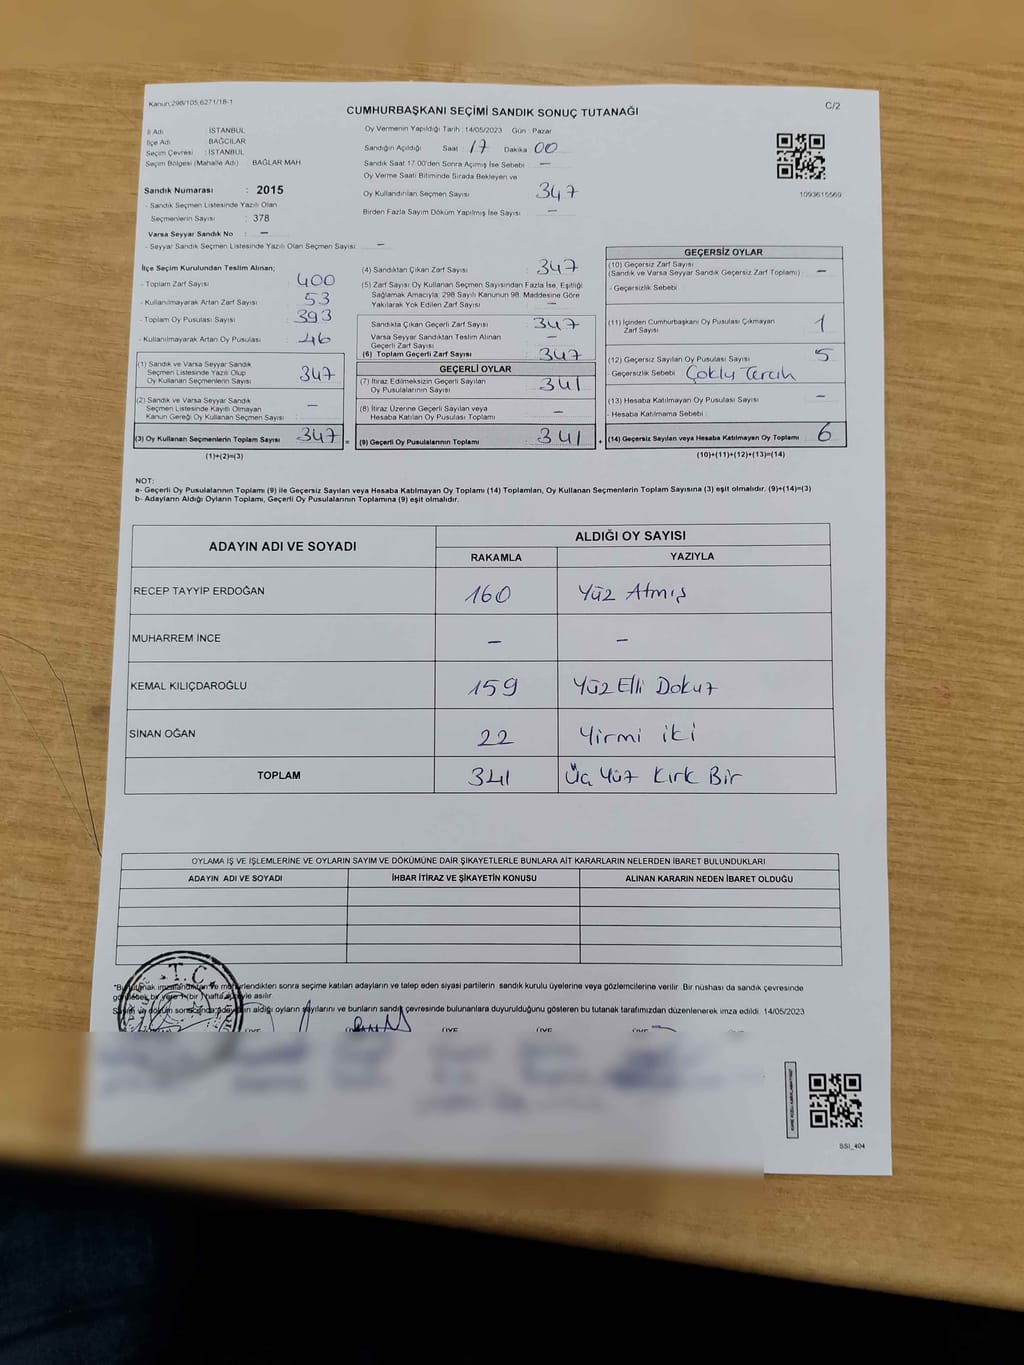 Kanun;298/105;6271/18-1
C/2
CUMHURBAŞKANI SEÇİMİ SANDIK SONUÇ TUTANAĞI
İl Adı : İSTANBUL
İlçe Adı : BAĞCILAR
Seçim Çevresi : İSTANBUL
Seçim Bölgesi (Mahalle Adı) : BAĞLAR MAH.
Sandık Numarası : 2015
- Sandık Seçmen Listesinde Yazılı Olan
Seçmenlerin Sayısı : 378
Varsa Seyyar Sandık No : —
- Seyyar Sandık Seçmen Listesinde Yazılı Olan Seçmen Sayısı : —
Oy Vermenin Yapıldığı Tarih : 14/05/2023 Gün : Pazar
Sandığın Açıldığı Saat : 17 Dakika : 00
Sandık Saat 17:00'den Sonra Açımış İse Sebebi : —
Oy Verme Saati Bitiminde Sırada Bekleyen ve
Oy Kullandırılan Seçmen Sayısı : 347
Birden Fazla Sayım Döküm Yapılmış İse Sayısı : —
1093615569
İlçe Seçim Kurulundan Teslim Alınan;
- Toplam Zarf Sayısı : 400
- Kullanılmayarak Artan Zarf Sayısı : 53
- Toplam Oy Pusulası Sayısı : 393
- Kullanılmayarak Artan Oy Pusulası : 46
(1) Sandık ve Varsa Seyyar Sandık
Seçmen Listesinde Yazılı Olup
Oy Kullanan Seçmenlerin Sayısı : 347
(2) Sandık ve Varsa Seyyar Sandık
Seçmen Listesinde Kayıtlı Olmayan
Kanun Gereği Oy Kullanan Seçmen Sayısı : —
(3) Oy Kullanan Seçmenlerin Toplam Sayısı : 347 =
(1)+(2)=(3)
(4) Sandıktan Çıkan Zarf Sayısı : 347
(5) Zarf Sayısı Oy Kullanan Seçmen Sayısından Fazla İse, Eşitliği
Sağlamak Amacıyla; 298 Sayılı Kanunun 98. Maddesine Göre
Yakılarak Yok Edilen Zarf Sayısı : —
Sandıkta Çıkan Geçerli Zarf Sayısı : 347
Varsa Seyyar Sandıktan Teslim Alınan
Geçerli Zarf Sayısı : —
(6) Toplam Geçerli Zarf Sayısı : 347
GEÇERLİ OYLAR
(7) İtiraz Edilmeksizin Geçerli Sayılan
Oy Pusulalarının Sayısı : 341
(8) İtiraz Üzerine Geçerli Sayılan veya
Hesaba Katılan Oy Pusulası Toplamı : —
(9) Geçerli Oy Pusulalarının Toplamı : 341 +
GEÇERSİZ OYLAR
(10) Geçersiz Zarf Sayısı
(Sandık ve Varsa Seyyar Sandık Geçersiz Zarf Toplamı) : —
- Geçersizlik Sebebi
(11) İçinden Cumhurbaşkanı Oy Pusulası Çıkmayan
Zarf Sayısı : 1
(12) Geçersiz Sayılan Oy Pusulası Sayısı : 5
- Geçersizlik Sebebi : Çoklu Tercih
(13) Hesaba Katılmayan Oy Pusulası Sayısı : —
- Hesaba Katılmama Sebebi :
(14) Geçersiz Sayılan veya Hesaba Katılmayan Oy Toplamı : 6
(10)+(11)+(12)+(13)=(14)
NOT:
a- Geçerli Oy Pusulalarının Toplamı (9) ile Geçersiz Sayılan veya Hesaba Katılmayan Oy Toplamı (14) Toplamları, Oy Kullanan Seçmenlerin Toplam Sayısına (3) eşit olmalıdır. (9)+(14)=(3)
b- Adayların Aldığı Oyların Toplamı, Geçerli Oy Pusulalarının Toplamına (9) eşit olmalıdır.
ADAYIN ADI VE SOYADI
ALDIĞI OY SAYISI
RAKAMLA YAZIYLA
RECEP TAYYİP ERDOĞAN 160 Yüz Atmış
MUHARREM İNCE — —
KEMAL KILIÇDAROĞLU 159 Yüz Elli Dokuz
SİNAN OĞAN 22 Yirmi iki
TOPLAM 341 Üç Yüz Kırk Bir
OYLAMA İŞ VE İŞLEMLERİNE VE OYLARIN SAYIM VE DÖKÜMÜNE DAİR ŞİKAYETLERLE BUNLARA AİT KARARLARIN NELERDEN İBARET BULUNDUKLARI
ADAYIN ADI VE SOYADI İHBAR İTİRAZ VE ŞİKAYETİN KONUSU ALINAN KARARIN NEDEN İBARET OLDUĞU
T.C.
*Bu tutanak imzalandıktan ve mühürlendikten sonra seçime katılan adayların ve talep eden siyasi partilerin sandık kurulu üyelerine veya gözlemcilerine verilir. Bir nüshası da sandık çevresinde
görülebilecek bir yere 1 (bir) hafta süreyle asılır.
Sayım ve döküm sonucunda adayların aldığı oyların sayılarını ve bunların sandık çevresinde bulunanlara duyurulduğunu gösteren bu tutanak tarafımızdan düzenlenerek imza edildi. 14/05/2023
SSI_404